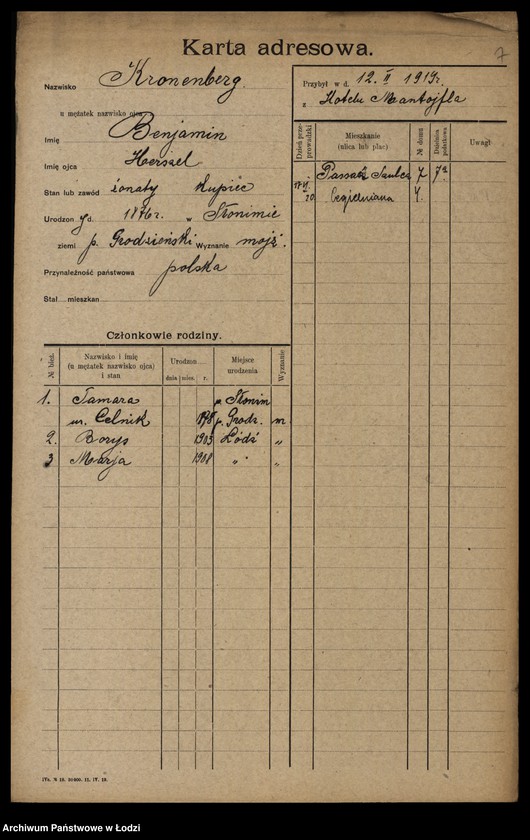 7
Karta adresowa.
Nazwisko Kronenberg
u mężatek nazwisko ojca
Imię Benjamin
Imię ojca Herszel
Stan lub zawód żonaty Kupiec
Urodzon y d. 1876r. w Słonimie
ziemi p. Grodzieński Wyznanie mojż.
Przynależność państwowa polska
Stał mieszkan
Przybył w d. 12. II 1919r.
z Hotelu Mantojfla
Dzień przeprowadzki
Mieszkanie
(ulica lub plac)
№ domu
Dzielnica podatkowa
Uwagi
Passaż Szulca 7 7a
17 VI. 20. Cegielniana 4.
Członkowie rodziny.
№ bież.
Nazwisko i imię
(u mężatek nazwisko ojca)
i stan
Urodzon
dnia mies. r.
Miejsce
urodzenia
Wyznanie
1. Tamara p. Słonim
ur. Celnik p. Grodz. m
2. Borys 1903 Łódź „
3 Marja 1908 „ „
11. IV. 18.
Archiwum Państwowe w Łodzi